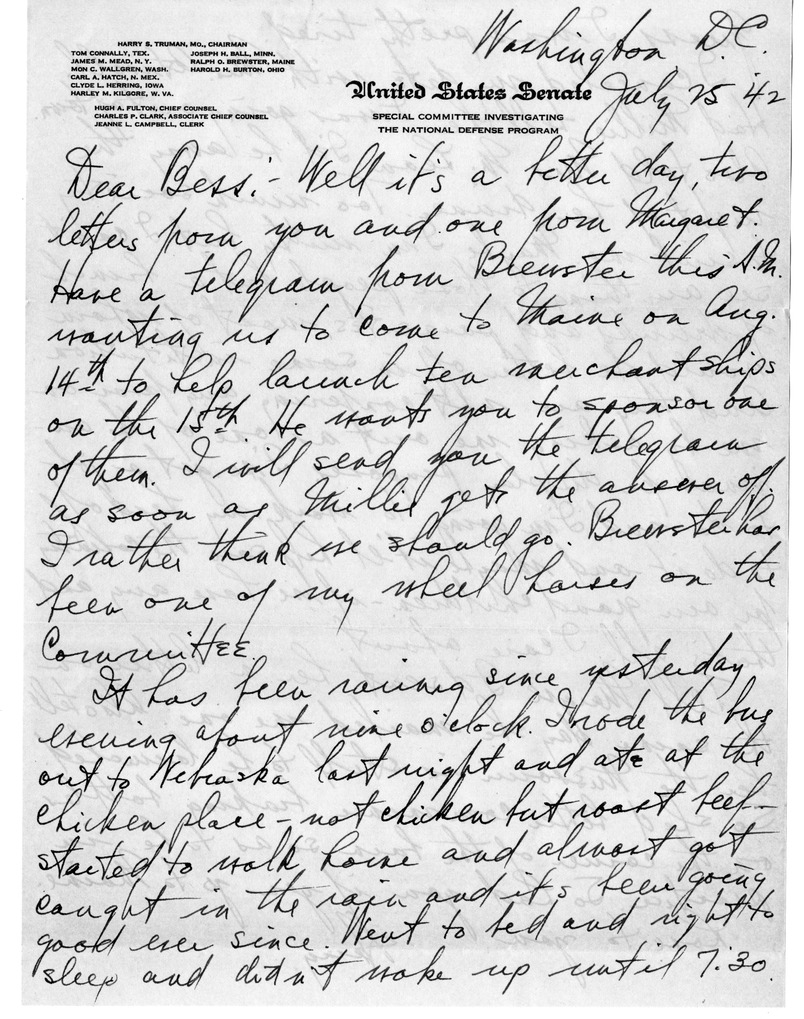 HARRY S. TRUMAN, MO., CHAIRMAN
TOM CONNALLY, TEX. JOSEPH H. BALL, MINN.
JAMES M. MEAD, N. Y. RALPH O. BREWSTER, MAINE
MON C. WALLGREN, WASH. HAROLD H. BURTON, OHIO
CARL A. HATCH, N. MEX.
CLYDE L. HERRING, IOWA
HARLEY M. KILGORE, W. VA.
HUGH A. FULTON, CHIEF COUNSEL
CHARLES P. CLARK, ASSOCIATE CHIEF COUNSEL
JEANNE L. CAMPBELL, CLERK
United States Senate
SPECIAL COMMITTEE INVESTIGATING
THE NATIONAL DEFENSE PROGRAM
Washington, D.C.
July 25 '42
Dear Bess:- Well it's a better day, two
letters from you and one from Margaret.
Have a telegram from Brewster this A.M.
wanting us to come to Maine on Aug.
14th to help launch ten merchant ships
on the 15th. He wants you to sponsor one
of them. I will send you the telegram
as soon as Millie gets the answer off.
I rather think we should go. Brewster has
been one of my wheel horses on the
Committee.
It has been raining since yesterday
evening about nine o'clock. I rode the bus
out to Nebraska last night and ate at the
chicken place - not chicken but roast beef -
started to walk home and almost got
caught in the rain and it's been going
good ever since. Went to bed and right to
sleep and didn't wake up until 7:30.